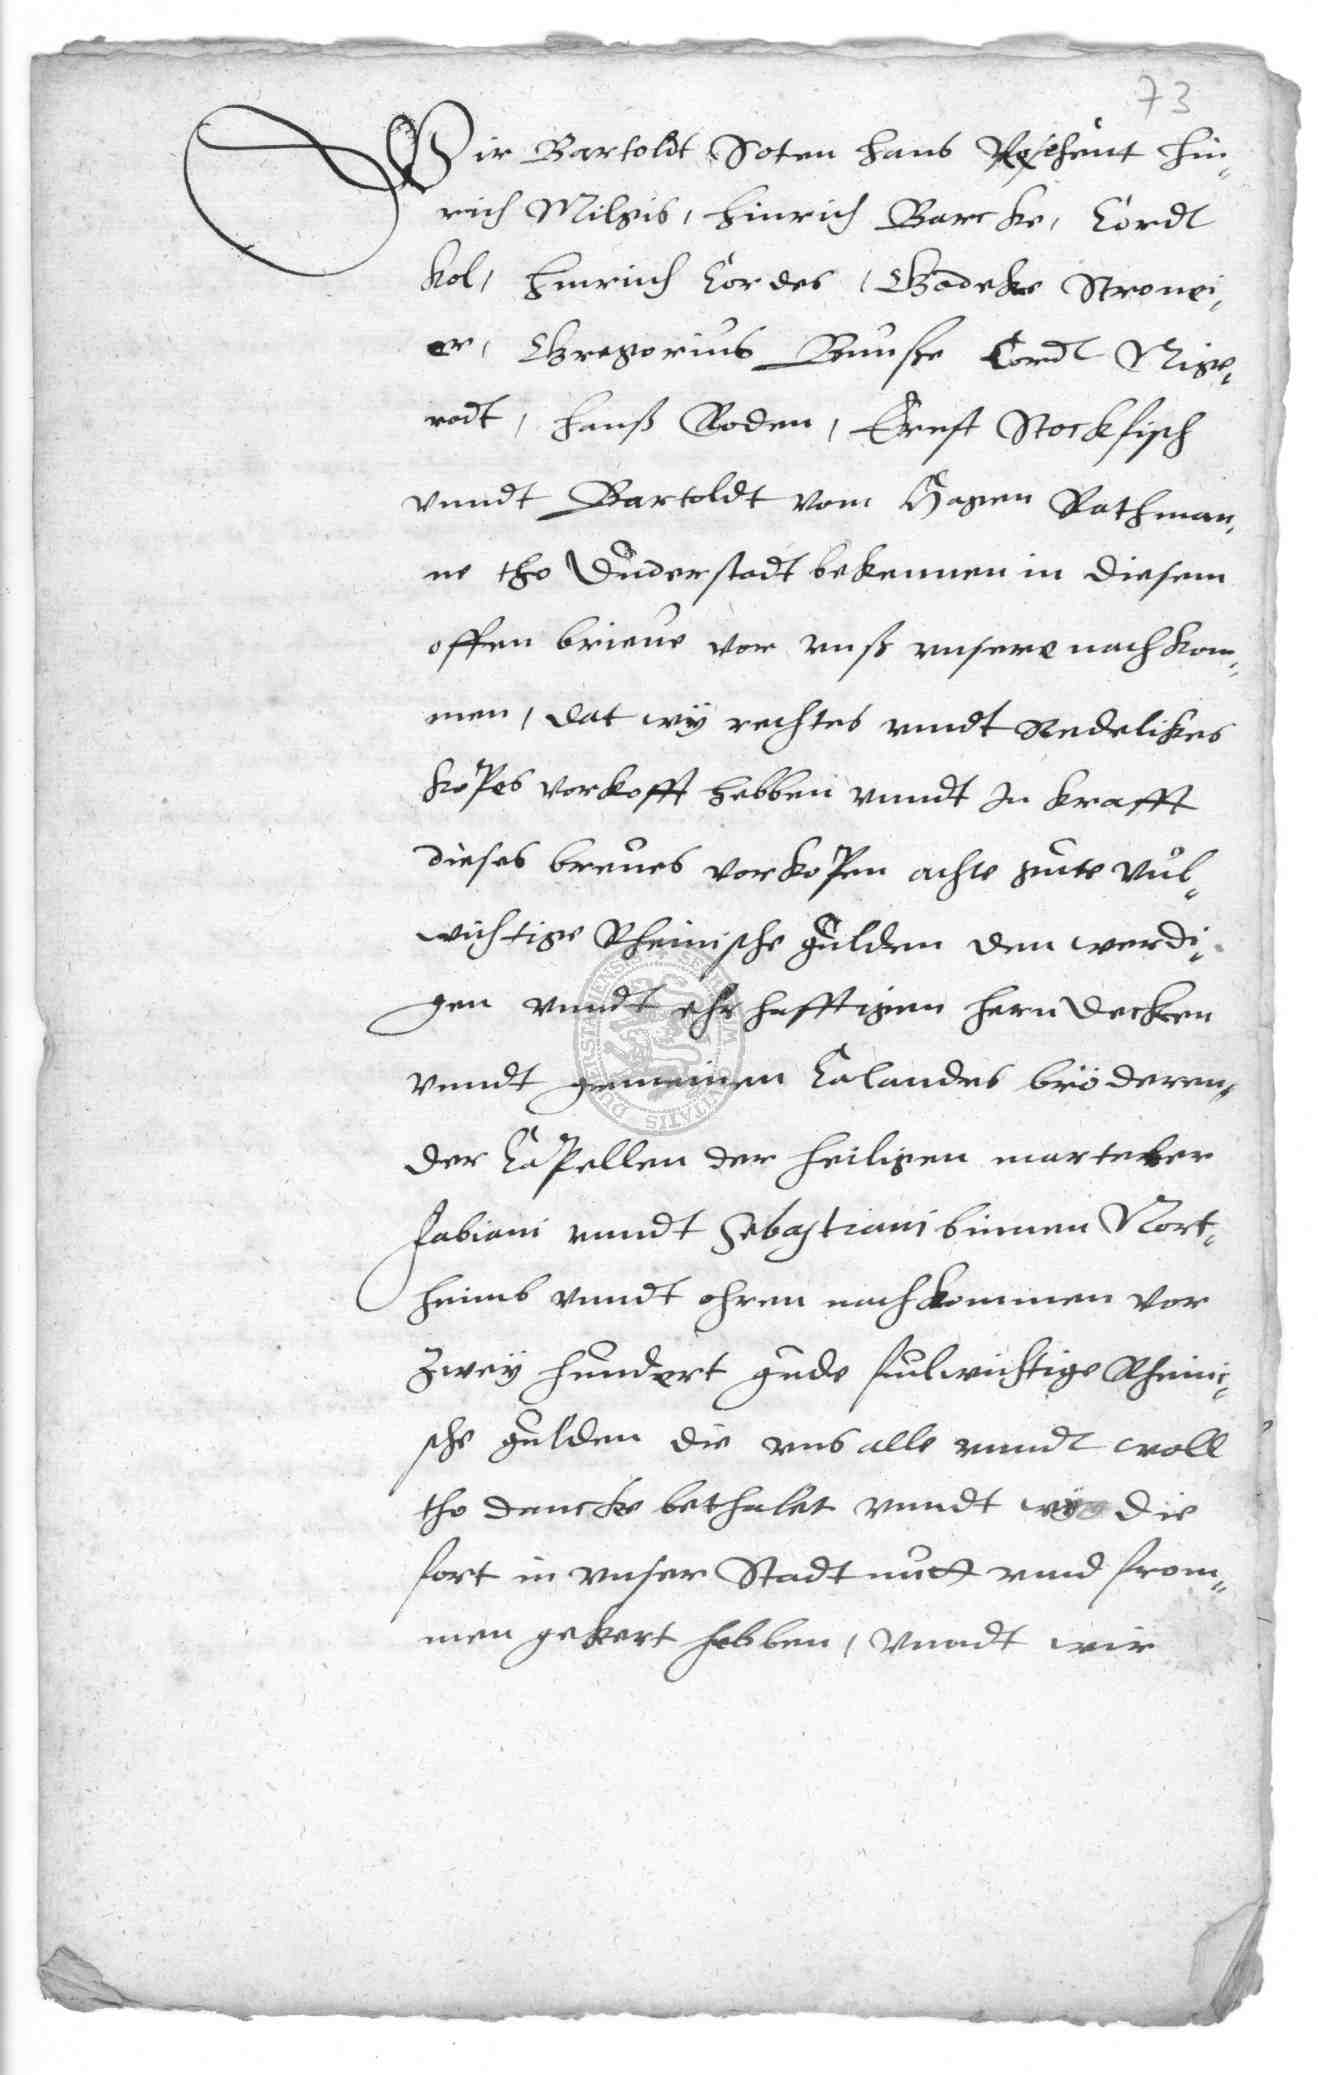 73
Wir Bartoldt Soten Hans Hin¬
rich Milgis, Hinrich Barcke, Cordt
Kol, Hinrich Cordes, Godeke Stromei¬
er, Gregorius Bunse Cordt Nige¬
rodt, Hanß Roden, Ernst Stockfisch
vnndt Bartoldt vom Hagen Rathman¬
ne tho Duderstadt bekennen in diesem
offen brieue vor vnß vnsere nachkom¬
men, dat wÿ rechtes vndt Redelikes
kopes vorkofft hebben vnndt In krafft
dieses breues vorkopen achte gute vul¬
wichtige Rheinische gulden den werdi¬
gen vnndt ehrhafftigen hern decken
vnndt gemeinen Calandes bröderen¬
der Capellen der heiligen marteler
Fabiani vnndt Sebastiani binnen Nort¬
heimb vnndt ohren nachkommen vor
Zweÿ hundert gude fulwichtige Rheini¬
sche gulden die vns alle vnndt woll
tho dancke bethalet vnndt wÿ die
fort in vnser Stadt nutt vnd from¬
men gekert hebben, vnndt wir
SECRETUM CIVITATIS DUDERSTADENSIS